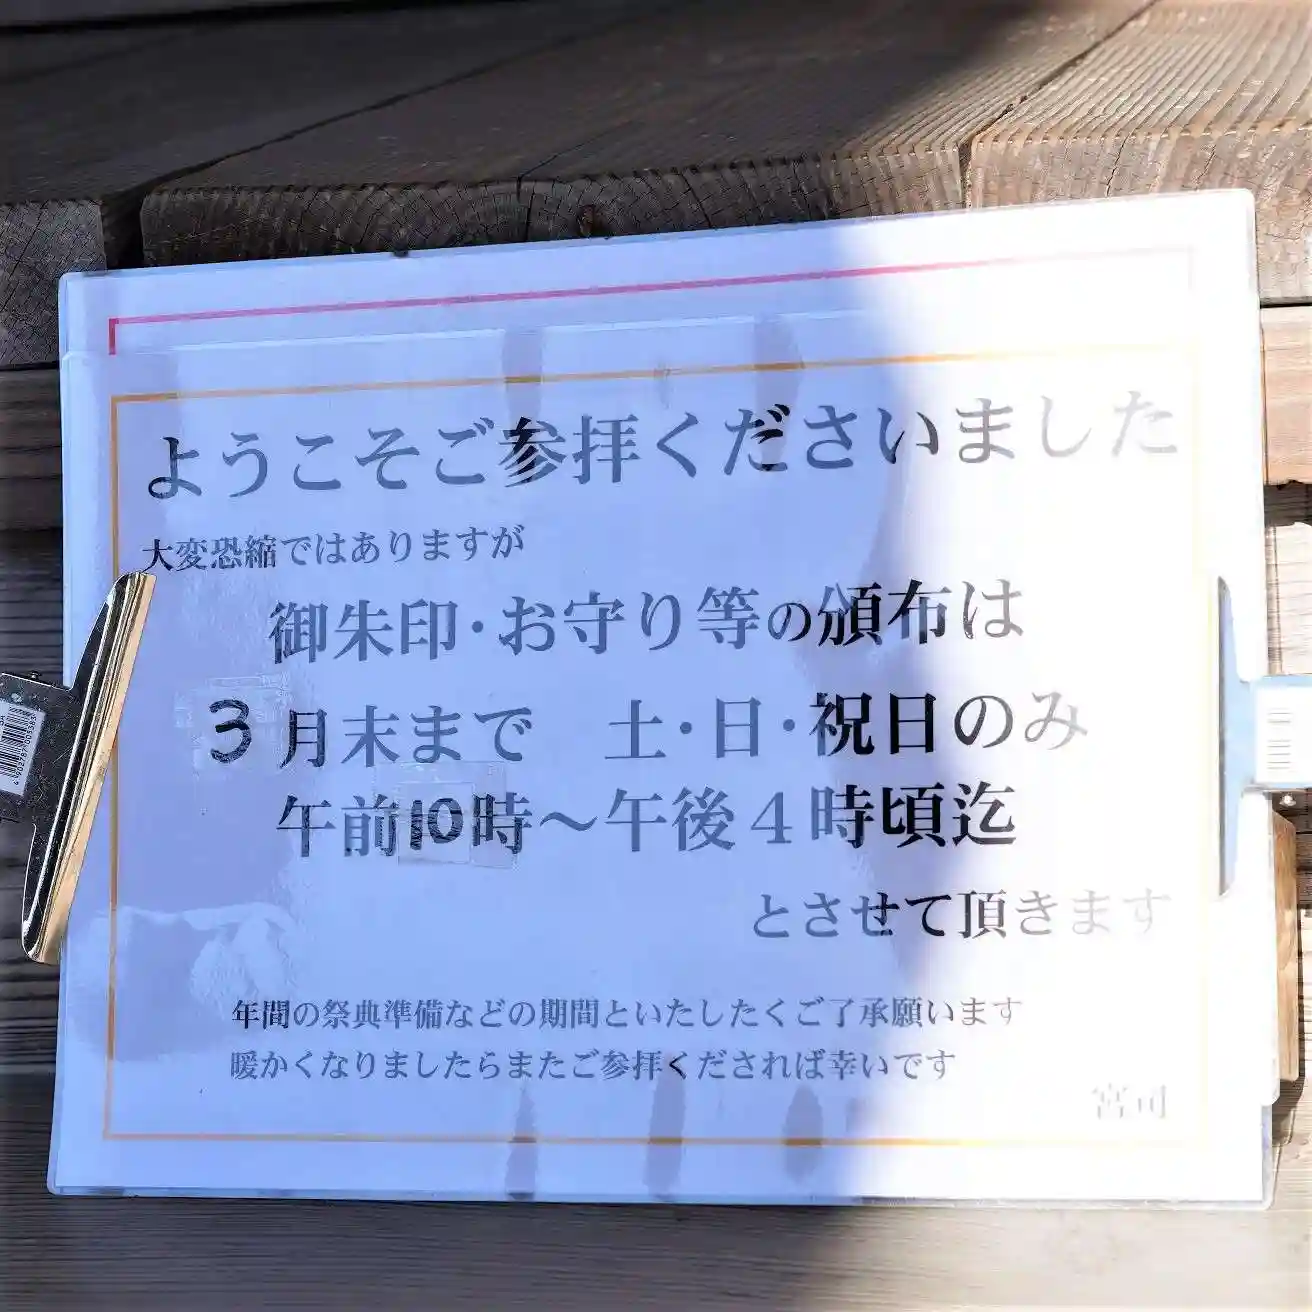 ようこそご参拝くださいました
大変恐縮ではありますが
御朱印・お守り等の頒布は
3月末まで　土・日・祝日のみ
午前10時～午後4時頃迄
とさせて頂きます
年間の祭典準備などの期間といたしたくご了承願います
暖かくなりましたらまたご参拝くだされば幸いです
宮司